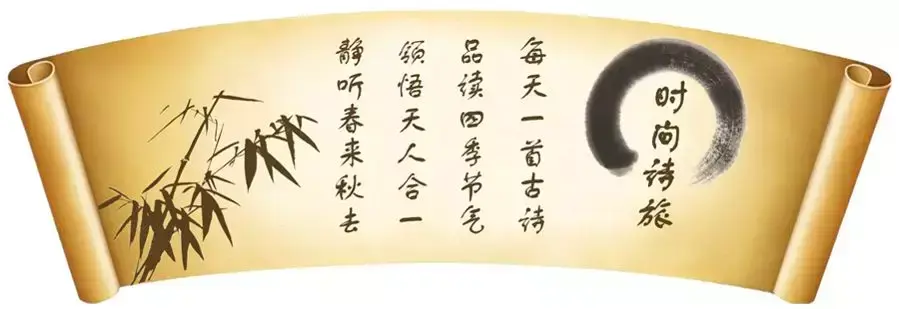 时间诗旅
每天一首古诗
品读四季节气
领悟天人合一
静听春来秋去